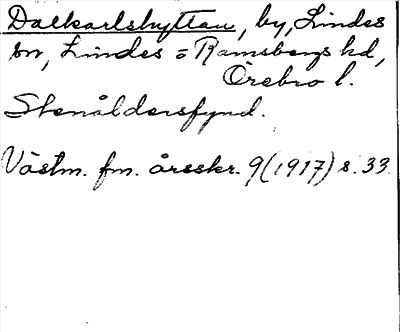 Dalkarlshyttan, by, Lindes
sn, Lindes = Ramsbergs hd,
Örebro l.
Stenåldersfynd.
Västm. fm. årsskr. 9 (1917) s. 33.